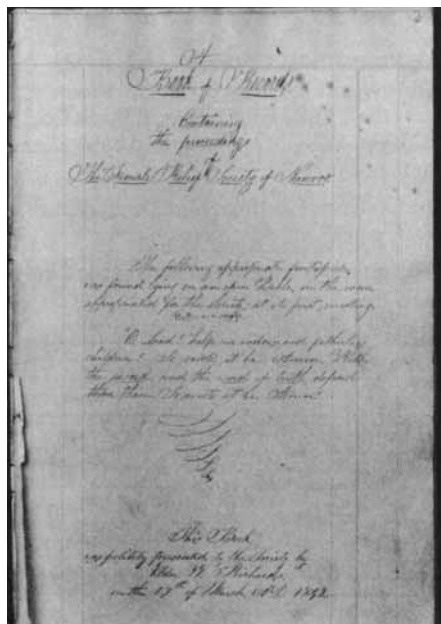 2
A
Book of Records
Containing
the proceedings
of
The Female Relief Society of Nauvoo
The following appropriate frontispiece
was found lying on an open Bible, in the room
appropriated for the Society, at its first meeting.
"O, Lord! help our widows, and fatherless
children! So mote it be. Amen. With
the sword, and the word of truth, defend
thou them. So mote it be. Amen."
This Book
was politely presented to the Society by
Elder W. Richards,
on the 17th of March A.D. 1842.